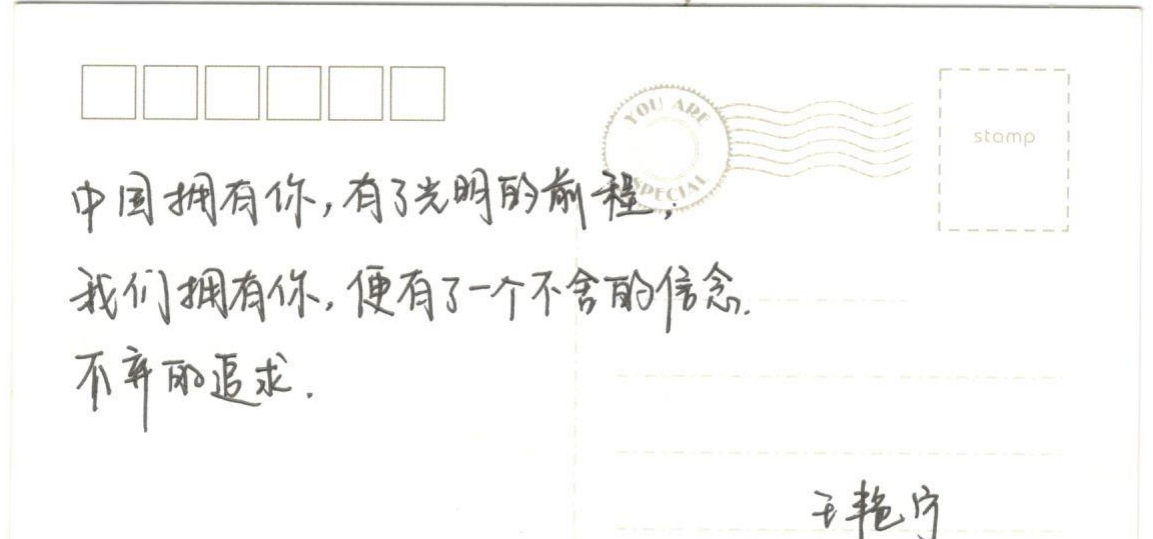 YOU ARE
SPECIAL
stamp
中国拥有你,有了光明的前程;
我们拥有你,便有了一个不舍的信念.
不弃的追求.
王艳宁